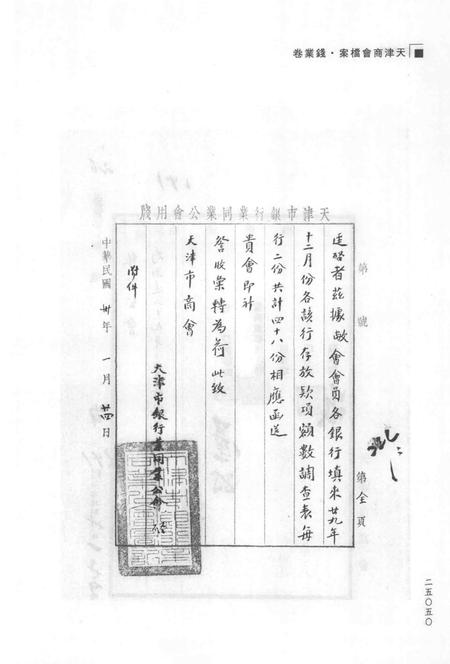 天津商會檔案·錢業卷
天津市銀行業同業公會用牋
第　號
第全頁
逕啓者茲據敝會會員各銀行填來廿九年
十二月份各該行存放款項額數調查表每
行二份共計四十八份相應函送
貴會即祈
詧收彙轉為荷此致
天津市商會
附件
天津市銀行業同業公會啟
中華民國卅年一月廿四日
二五〇五〇